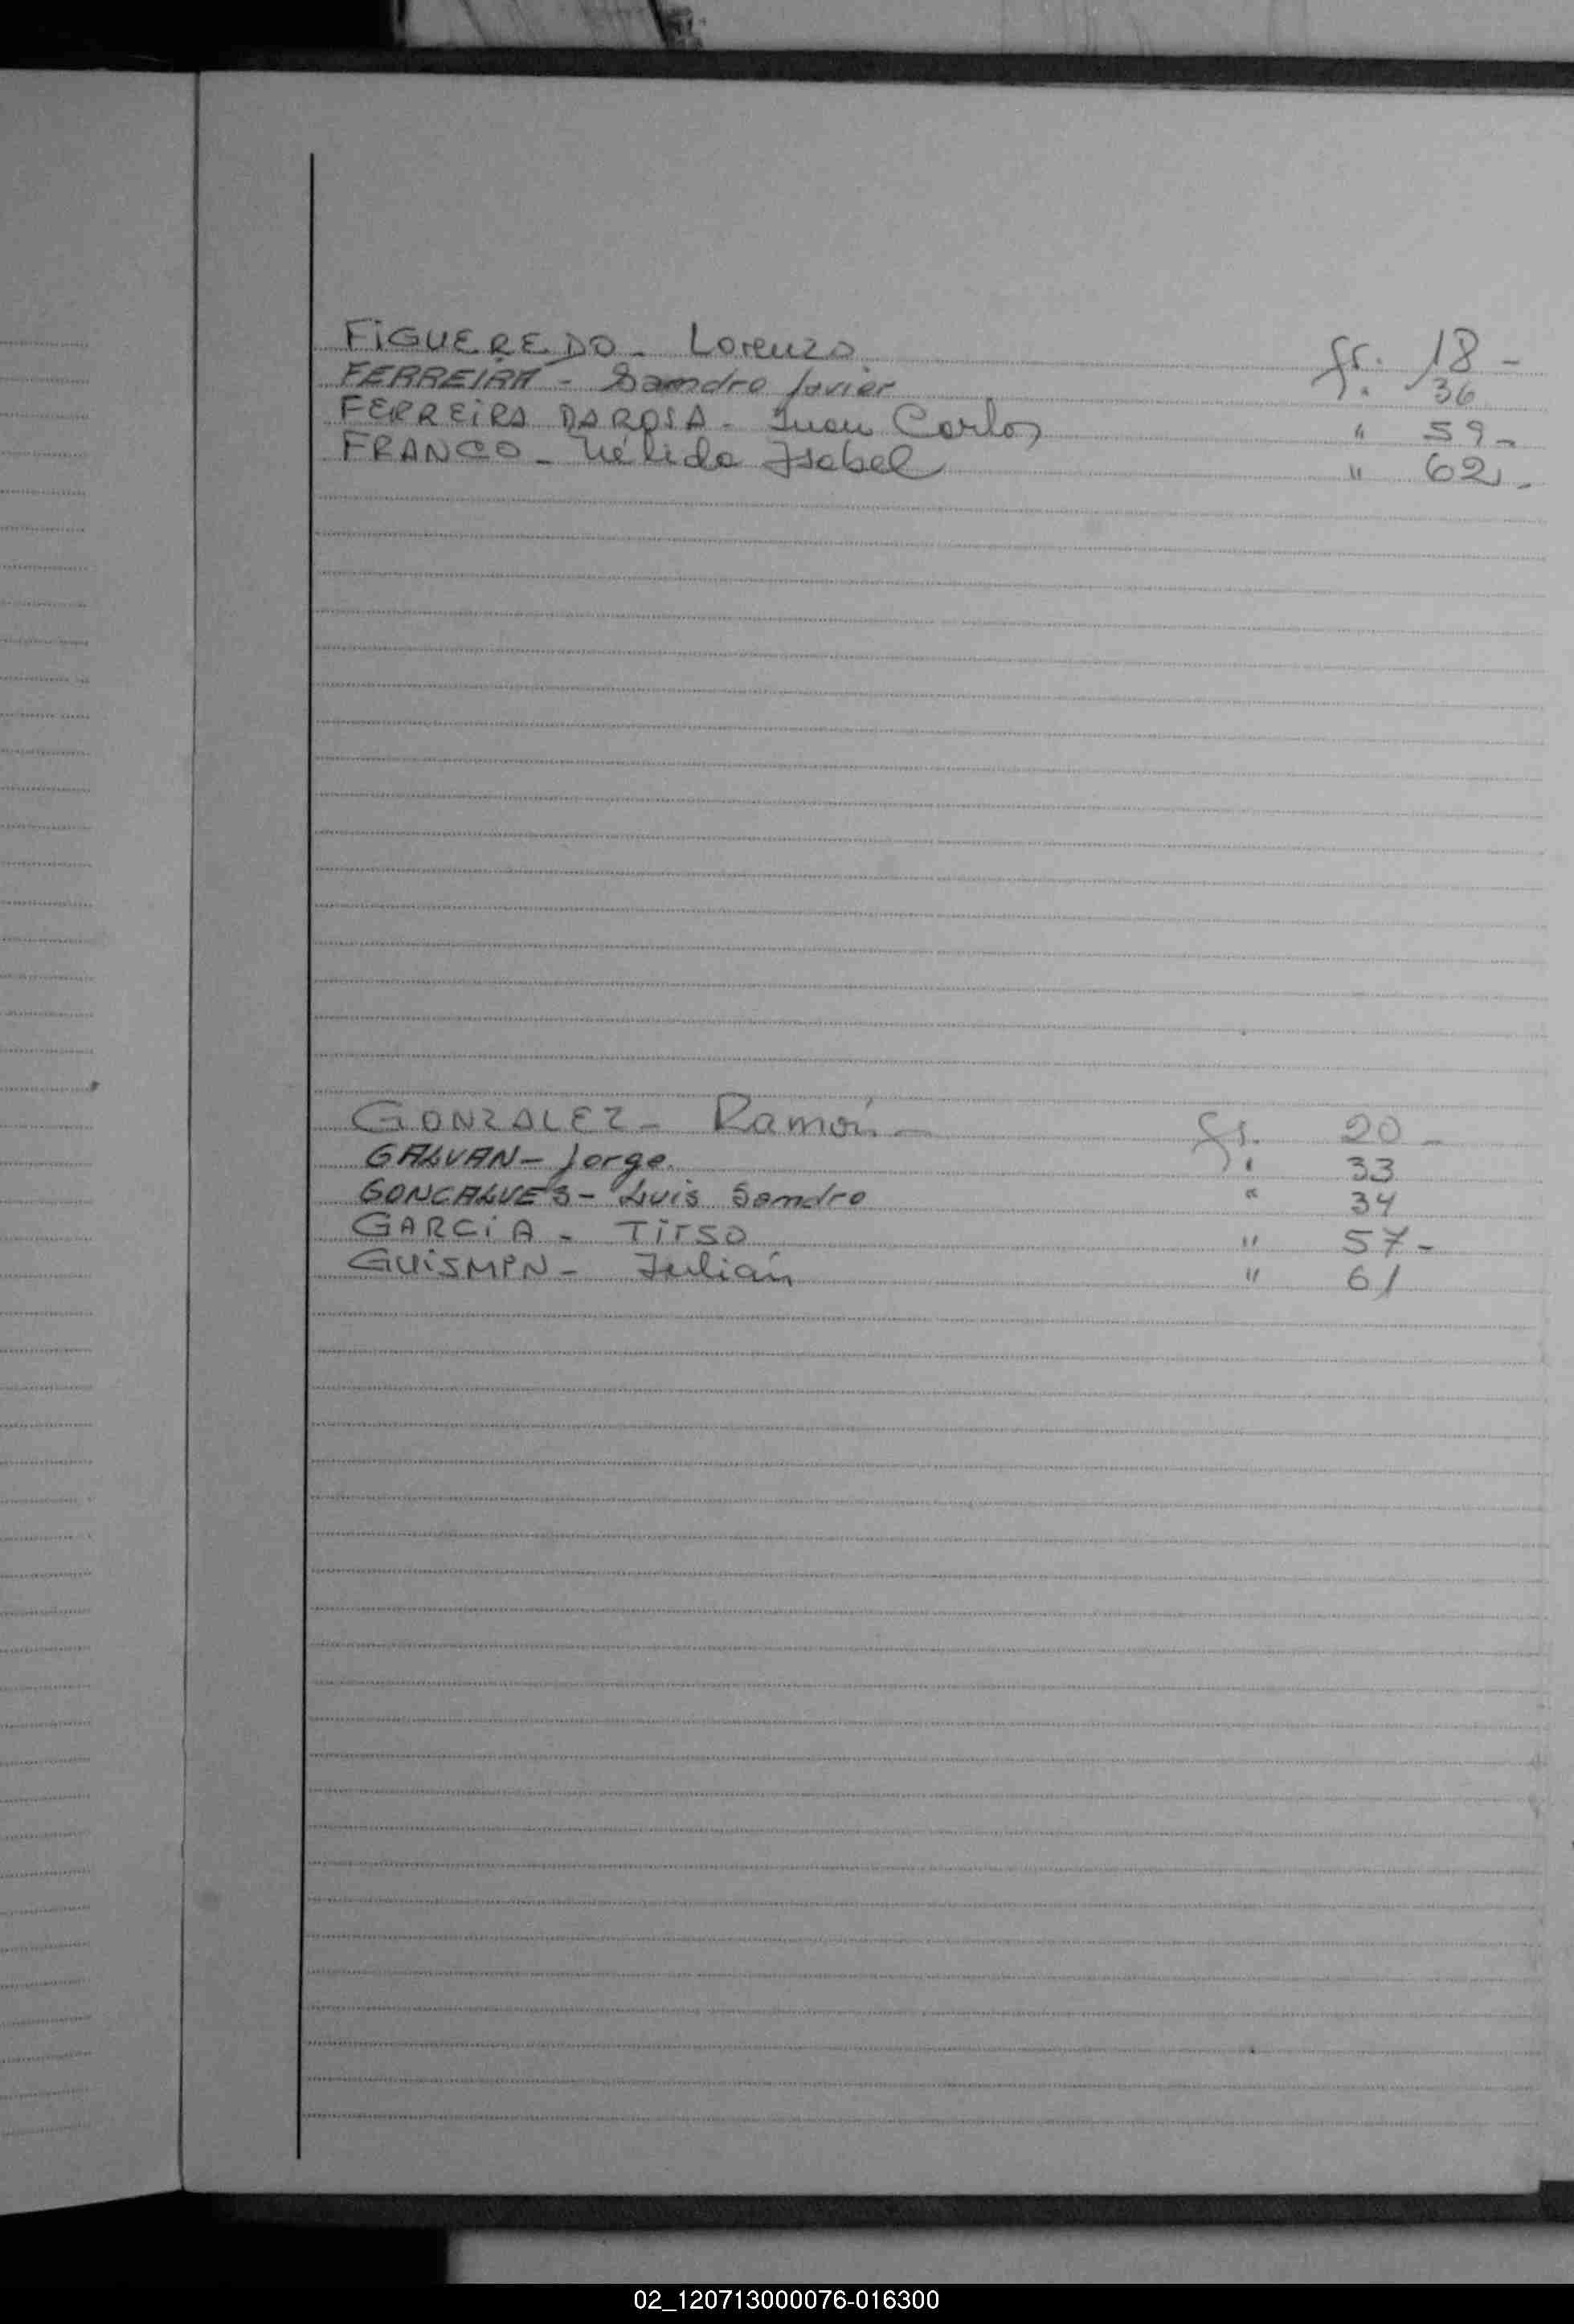 FIGUEREDO - Lorenzo fs. 18 -
FERREIRA - Sandro Javier " 36
FERREIRA DA ROSA - Juan Carlos " 59 -
FRANCO - Nélida Isabel " 62 -
GONZALEZ - Ramón - fs. 20 -
GALVAN - Jorge. " 33
GONCALVES - Luis Sandro " 34
GARCIA - Tirso " 57 -
GUISMAN - Julián " 61
02_120713000076-016300